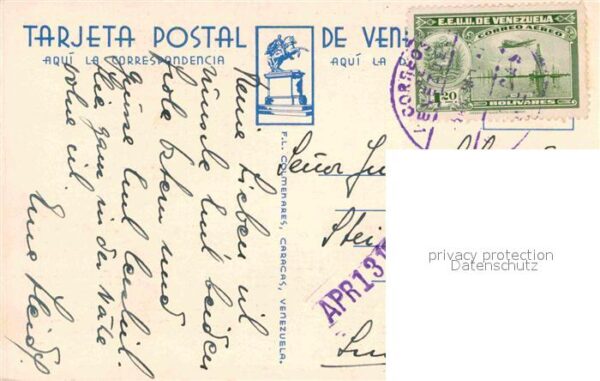 TARJETA POSTAL DE VEN
AQUÍ LA CORRESPONDENCIA
AQUÍ LA D
E.E.U.U. DE VENEZUELA
CORREO AEREO
1.20
BOLIVARES
CORREOS
F. L. COLMENARES, CARACAS, VENEZUELA.
Meine Lieben ich
wünsche Euch beiden
frohe Ostern und
Grüsse Euch herzlich.
hier ganz in der Nähe
wohne ich.
Eure
Señor
APR 13 1
privacy protection
Datenschutz